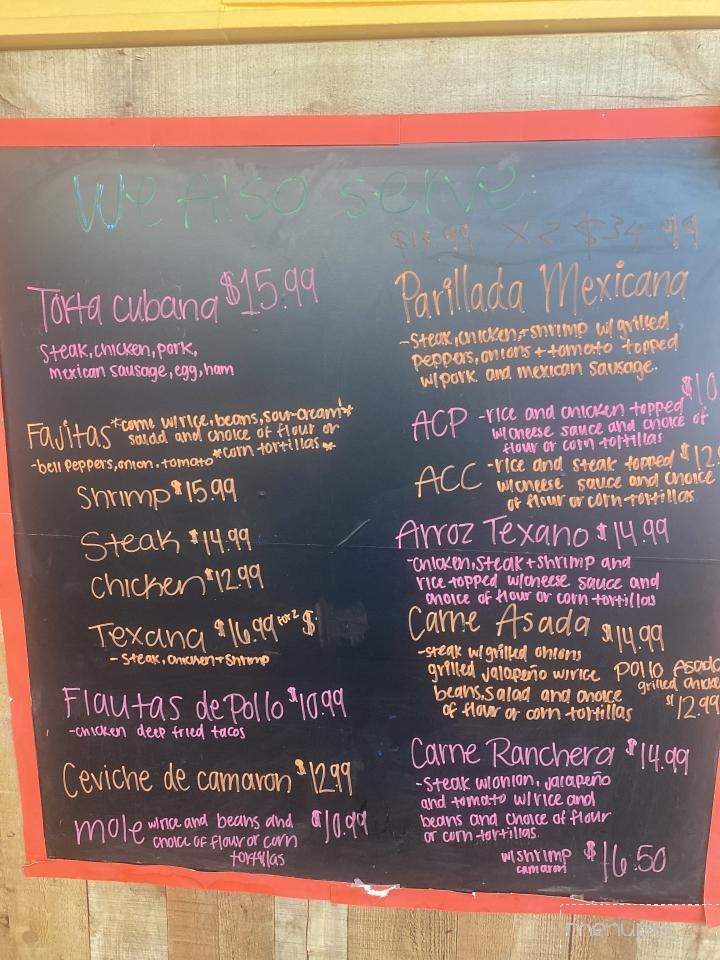 We Also serve:
Torta cubana $15.99
steak, chicken, pork,
mexican sausage, egg, ham
Fajitas *come w/rice, beans, sour-cream*
salad and choice of flour or
*corn tortillas*
-bell peppers, onion, tomato
Shrimp $15.99
Steak $14.99
Chicken $12.99
Texana $16.99 for 2 $
- steak, chicken + shrimp
Flautas de Pollo $10.99
-chicken deep fried tacos
Ceviche de camaron $12.99
mole w/rice and beans and $10.99
choice of flour or corn
tortillas
x2 $34.99
Parillada Mexicana
-steak, chicken, + shrimp w/ grilled
peppers, onions + tomato topped
w/pork and mexican sausage.
$10
ACP -rice and chicken topped
w/cheese sauce and choice of
flour or corn tortillas
ACC -rice and steak topped $12.9
w/cheese sauce and choice
of flour or corn tortillas
Arroz Texano $14.99
-chicken, steak + shrimp and
rice topped w/cheese sauce and
choice of flour or corn tortillas
Carne Asada $14.99
-steak w/ grilled onions
grilled jalapeño w/rice
beans, salad and choice
of flour or corn tortillas
Pollo Asado
grilled chicke
$12.99
Carne Ranchera $14.99
-steak w/onion, jalapeño
and tomato w/rice and
beans and choice of flour
or corn tortillas.
w/shrimp $16.50
camaron